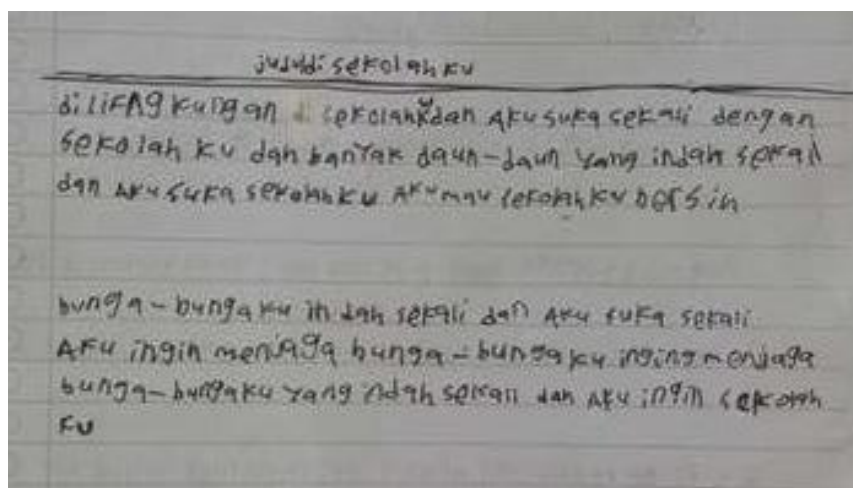 judul di sekolah ku
di lifngkungan di sekolahku dan Aku suka sekali dengan
sekolah ku dan banyak daun-daun yang indah sekali
dan Aku suka sekolahku Aku mau sekolahku bersin
bunga-bungaku indah sekali dan Aku suka sekali
Aku ingin menjaga bunga-bungaku inging menjaga
bunga-bungaku yang indah sekali dan Aku ingin sekolah
ku